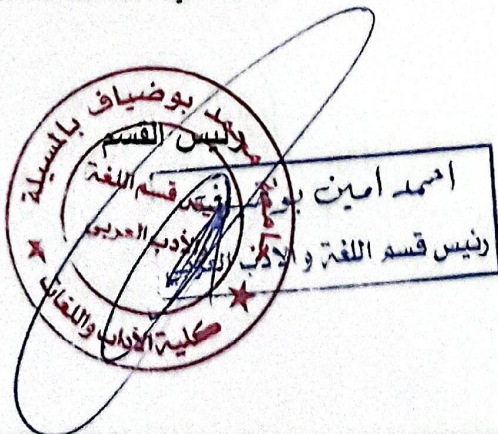 محمد بوضياف بالمسيلة
رئيس القسم
قسم اللغة
والأدب العربي
كلية الآداب واللغات
أمين
رئيس قسم اللغة و الأدب العربي